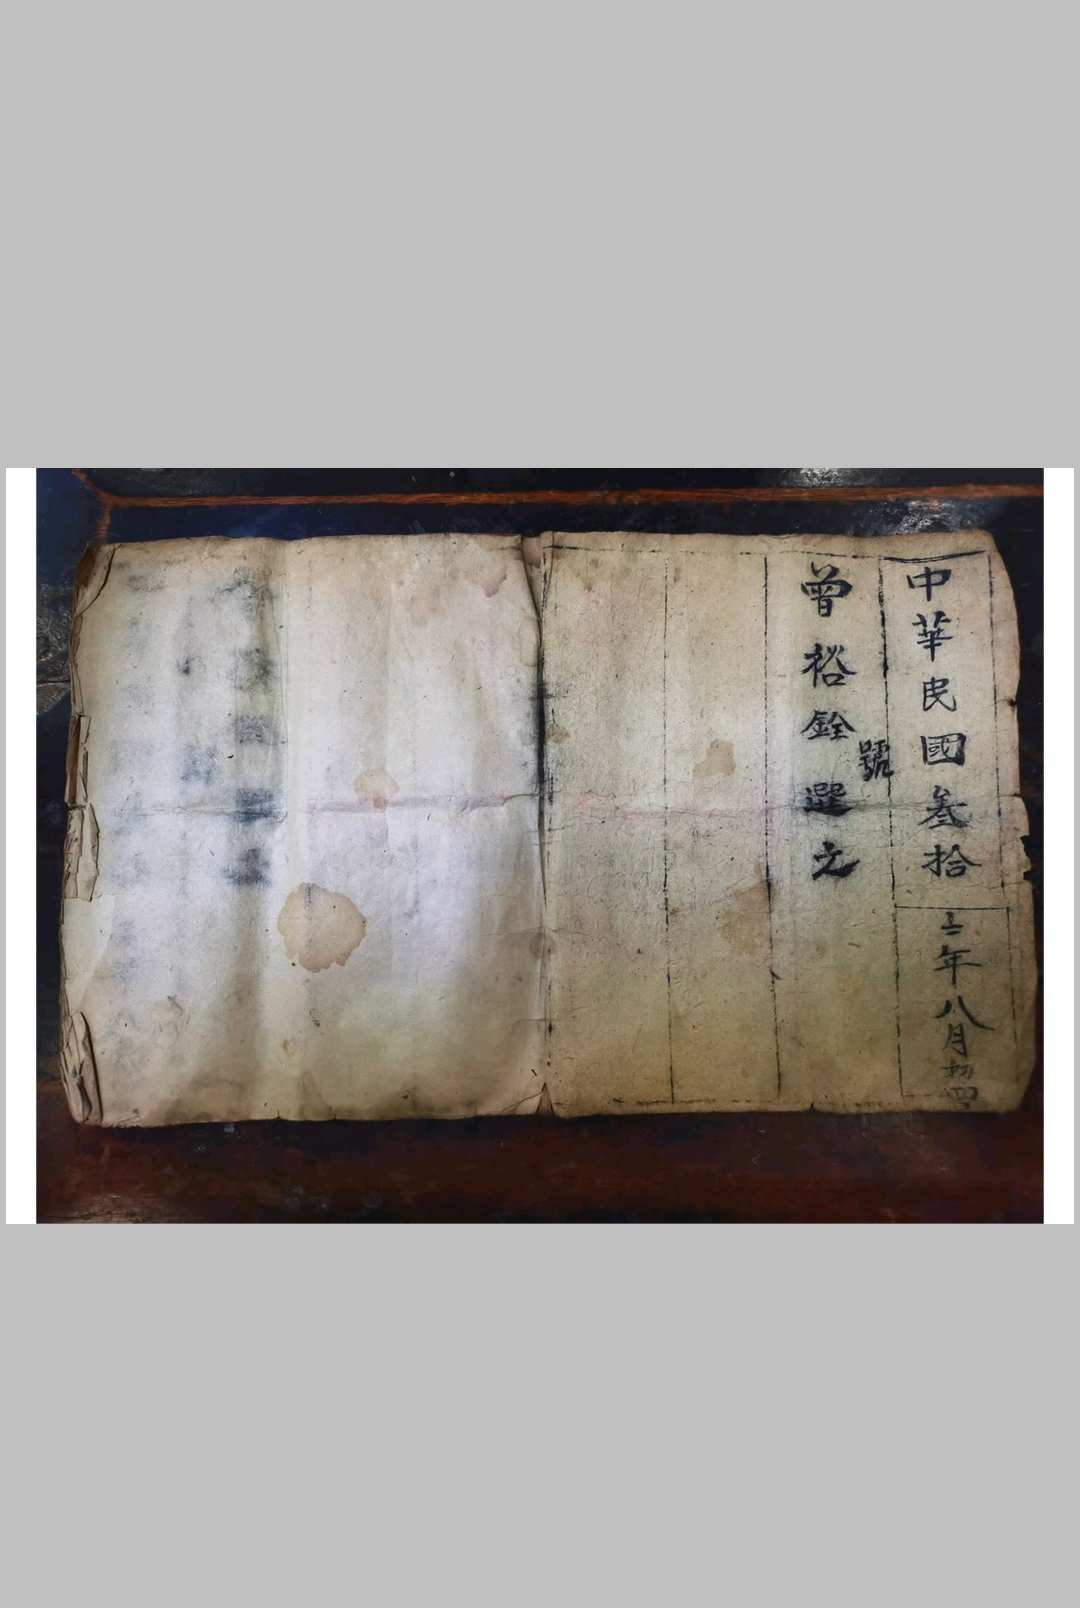 中華民國叁拾二年八月初四
號
曾裕銓選之